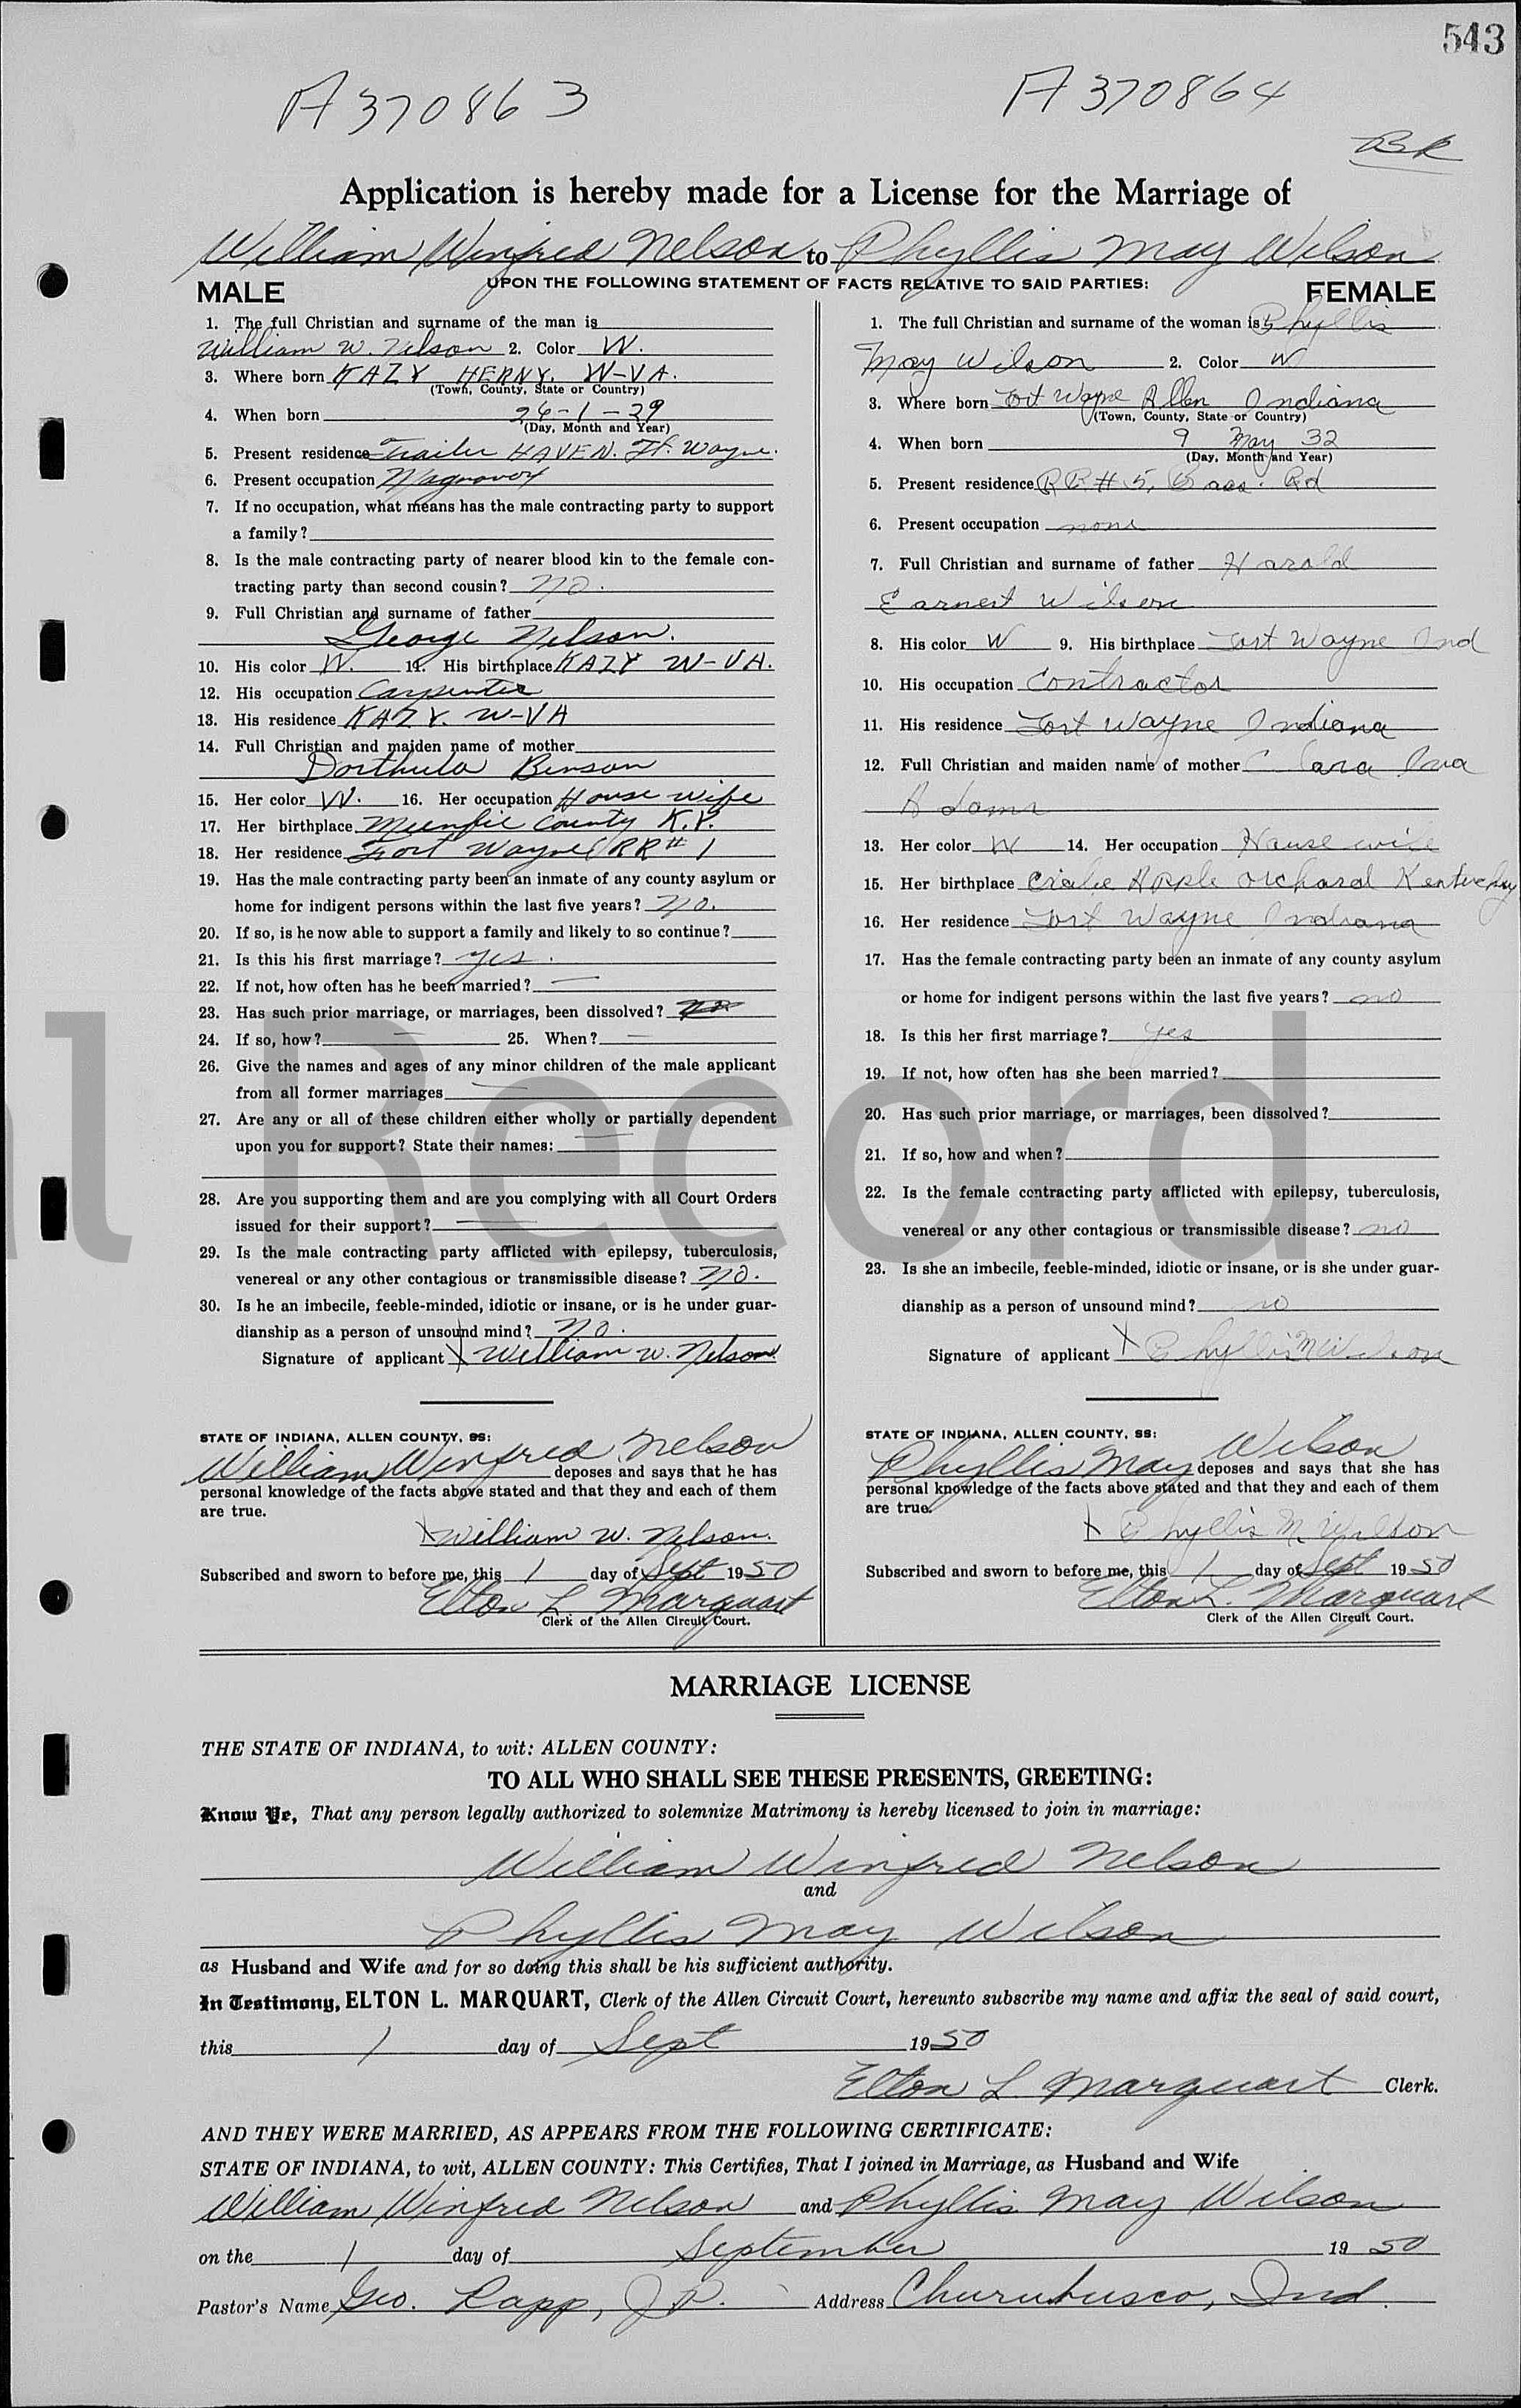 543
A 370863
A 370864
BR
Application is hereby made for a License for the Marriage of
William Winfred Nelson to Phyllis May Wilson
UPON THE FOLLOWING STATEMENT OF FACTS RELATIVE TO SAID PARTIES:
MALE
1. The full Christian and surname of the man is
William W. Nelson 2. Color W.
3. Where born KAZY HERNY. W-VA.
(Town, County, State or Country)
4. When born 26-1-29
(Day, Month and Year)
5. Present residence Trailer HAVEN. Ft. Wayne.
6. Present occupation Magnavox
7. If no occupation, what means has the male contracting party to support
a family?
8. Is the male contracting party of nearer blood kin to the female con-
tracting party than second cousin? no.
9. Full Christian and surname of father
George Nelson.
10. His color W. 11. His birthplace KAZY W-VA.
12. His occupation Carpenter
13. His residence KAZY. W-VA
14. Full Christian and maiden name of mother
Dorthula Benson
15. Her color W. 16. Her occupation House wife
17. Her birthplace County K.Y.
18. Her residence Fort Wayne RR# 1
19. Has the male contracting party been an inmate of any county asylum or
home for indigent persons within the last five years? no.
20. If so, is he now able to support a family and likely to so continue?
21. Is this his first marriage? yes.
22. If not, how often has he been married? —
23. Has such prior marriage, or marriages, been dissolved? no
24. If so, how? — 25. When? —
26. Give the names and ages of any minor children of the male applicant
from all former marriages —
27. Are any or all of these children either wholly or partially dependent
upon you for support? State their names: —
28. Are you supporting them and are you complying with all Court Orders
issued for their support? —
29. Is the male contracting party afflicted with epilepsy, tuberculosis,
venereal or any other contagious or transmissible disease? no.
30. Is he an imbecile, feeble-minded, idiotic or insane, or is he under guar-
dianship as a person of unsound mind? no.
Signature of applicant X William W. Nelson
STATE OF INDIANA, ALLEN COUNTY, SS:
William Winfred Nelson deposes and says that he has
personal knowledge of the facts above stated and that they and each of them
are true.
X William W. Nelson.
Subscribed and sworn to before me, this 1 day of Sept 1950
Elton L Marquart
Clerk of the Allen Circuit Court.
FEMALE
1. The full Christian and surname of the woman is Phyllis
May Wilson 2. Color W
3. Where born Fort Wayne Allen Indiana
(Town, County, State or Country)
4. When born 9 May 32
(Day, Month and Year)
5. Present residence RR # 5, Bass Rd
6. Present occupation none
7. Full Christian and surname of father Harald
Earnest Wilson
8. His color W 9. His birthplace Fort Wayne Ind
10. His occupation Contractor
11. His residence Fort Wayne Indiana
12. Full Christian and maiden name of mother Clara Iva
Adams
13. Her color W 14. Her occupation House wife
15. Her birthplace Apple orchard Kentucky
16. Her residence Fort Wayne Indiana
17. Has the female contracting party been an inmate of any county asylum
or home for indigent persons within the last five years? no
18. Is this her first marriage? yes
19. If not, how often has she been married?
20. Has such prior marriage, or marriages, been dissolved?
21. If so, how and when?
22. Is the female contracting party afflicted with epilepsy, tuberculosis,
venereal or any other contagious or transmissible disease? no
23. Is she an imbecile, feeble-minded, idiotic or insane, or is she under guar-
dianship as a person of unsound mind? no
Signature of applicant X Phyllis M Wilson
STATE OF INDIANA, ALLEN COUNTY, SS:
Phyllis May Wilson deposes and says that she has
personal knowledge of the facts above stated and that they and each of them
are true.
X Phyllis M. Wilson
Subscribed and sworn to before me, this 1 day of Sept 1950
Elton L. Marquart
Clerk of the Allen Circuit Court.
l Record
MARRIAGE LICENSE
THE STATE OF INDIANA, to wit: ALLEN COUNTY:
TO ALL WHO SHALL SEE THESE PRESENTS, GREETING:
Know Ye, That any person legally authorized to solemnize Matrimony is hereby licensed to join in marriage:
William Winfred Nelson
and
Phyllis May Wilson
as Husband and Wife and for so doing this shall be his sufficient authority.
In Testimony, ELTON L. MARQUART, Clerk of the Allen Circuit Court, hereunto subscribe my name and affix the seal of said court,
this 1 day of Sept 1950
Elton L. Marquart Clerk.
AND THEY WERE MARRIED, AS APPEARS FROM THE FOLLOWING CERTIFICATE:
STATE OF INDIANA, to wit, ALLEN COUNTY: This Certifies, That I joined in Marriage, as Husband and Wife
William Winfred Nelson and Phyllis May Wilson
on the 1 day of September 1950
Pastor's Name Geo. Rapp, J.P. Address Churubusco, Ind.